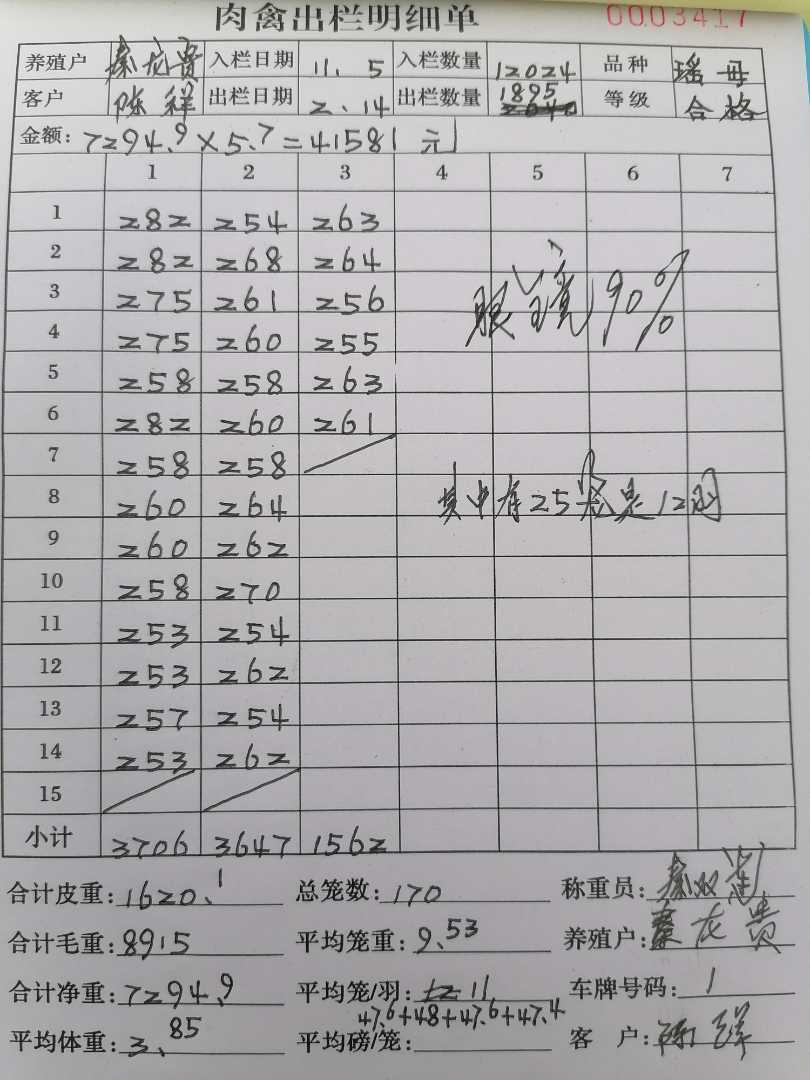 肉禽出栏明细单 0003417
养殖户 秦龙贵 入栏日期 11.5 入栏数量 12024 品种 瑶母
客户 陈祥 出栏日期 2.14 出栏数量 1895 等级 合格
金额: 7294.9×5.7=41581元
1 2 3 4 5 6 7
1 282 254 263
2 282 268 264
3 275 261 256
4 275 260 255
5 258 258 263
6 282 260 261
7 258 258
8 260 264
9 260 262
10 258 270
11 253 254
12 253 262
13 257 254
14 253 262
15
小计 3706 3647 1562
眼镜90%
其中有25笼是12羽
合计皮重: 1620.1 总笼数: 170 称重员: 秦
合计毛重: 8915 平均笼重: 9.53 养殖户: 秦龙贵
合计净重: 7294.9 平均笼/羽: 12 11 车牌号码: 1
平均体重: 3.85 平均磅/笼: 47.6+48+47.6+47.4 客户: 陈祥